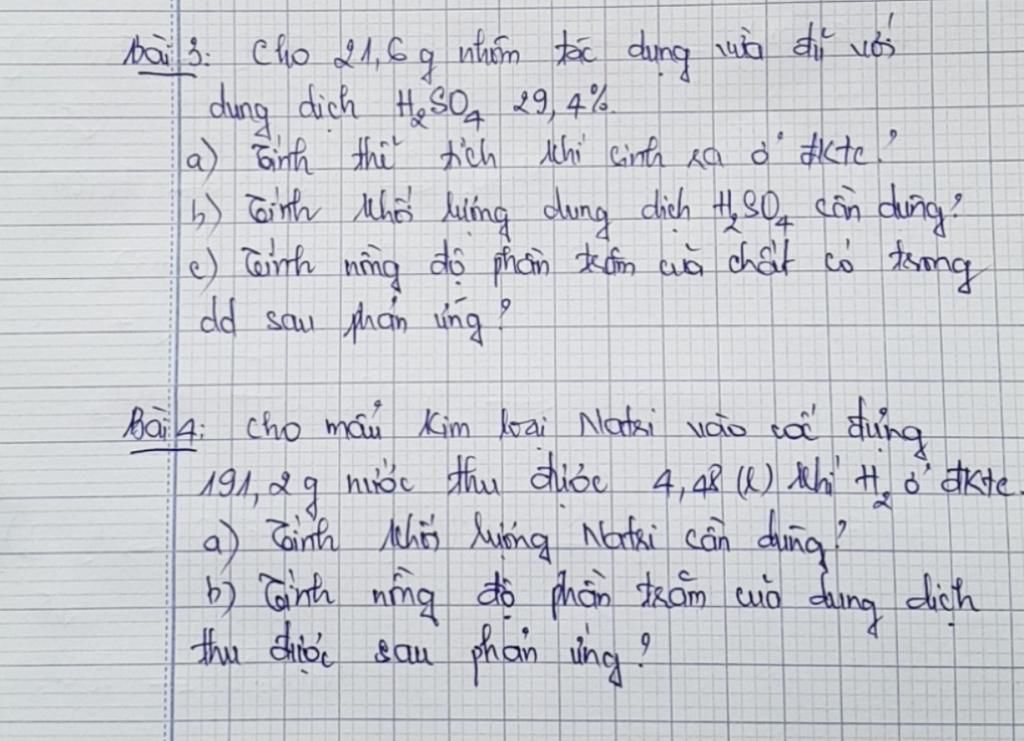 Bài 3: Cho 21,6 g nhôm tác dụng vừa đủ với
dung dịch H₂SO₄ 29,4%.
a) Tính thể tích khí sinh ra ở đktc?
b) Tính khối lượng dung dịch H₂SO₄ cần dùng?
c) Tính nồng độ phần trăm của chất có trong
dd sau phản ứng?
Bài 4: Cho mẩu kim loại Natri vào cốc đựng
191,2 g nước thu được 4,48 (l) khí H₂ ở đktc.
a) Tính khối lượng Natri cần dùng?
b) Tính nồng độ phần trăm của dung dịch
thu được sau phản ứng?